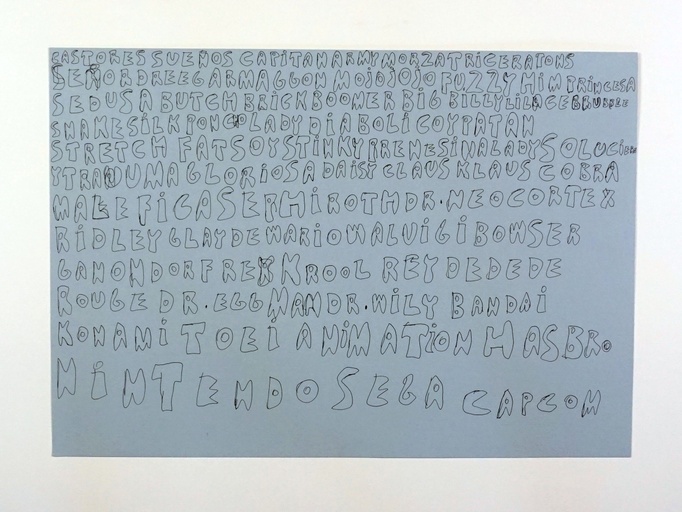 CASTORES SUEÑOS CAPITAN ARMY MORZA TRIGERATONS
SEÑOR DREEG ARMAGGON MOJOJOJO FUZZY HIM PRINCESA
SEDUSA BUTCH BRICK BOOMER BIG BILLY LIL ACE GRUBBER
SNAKE SILK PONG LADY DIABOLICO Y PATAN
STRETCH FATSO Y STINKY IRENE SINALADY SOLUCI
Y TRADUMA GLORIOSA DAISY CLAUS KLAUS COBRA
MALEFICA SEPHIROTH DR. NEO CORTEX
RIDLEY GLAYDE WARIO WALUIGI BOWSER
GANONDORF REX KROOL REY DEDEDE
ROUGE DR. EGGMAN DR. WILY BANDAI
KONAMI TOEI ANIMATION HASBRO
NINTENDO SEGA CAPCOM